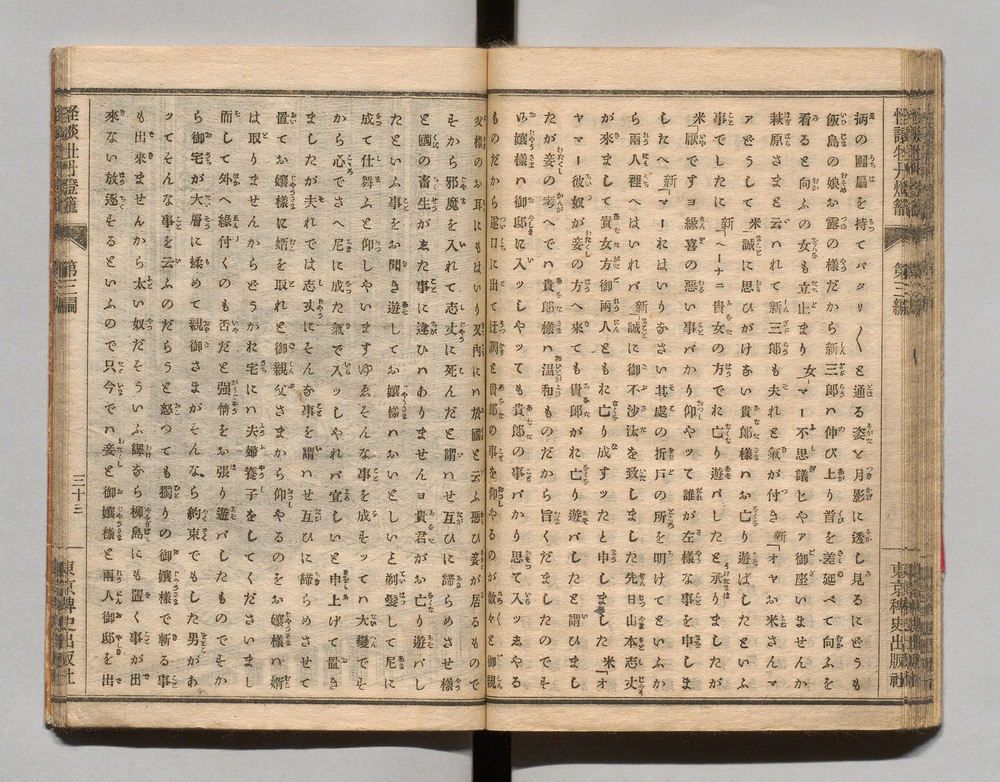 怪談牡丹燈籠 第三編 東京稗史出版社
柄の團扇を持てパタリ〳〵と通る姿を月影に透し見るにどうも
飯島の娘お露の樣だから新三郎ハ伸び上り首を差延べて向ふを
看ると向ふの女も立止まり 女「マー不思議じやァ御座いませんか
萩原さまと云ハれて新三郎も夫れと氣が付き 新「オヤお米さんマ
アどうして 米「誠に思ひがけない貴郎樣ハお亡り遊ばしたといふ
事でしたに 新「ヘーナニ貴女の方でお亡り遊バしたと承りましたが
米「厭ですヨ縁喜の悪い事バかり仰やッて誰が左樣な事を申しま
したへ 新「マーおはいりなさい其處の折戸の所を明けてといふか
ら兩人裡へはいれバ 新「誠に御不沙汰を致しました先日山本志丈
が來まして貴女方御兩人ともお亡り成すッたと申しました 米「オ
ヤマー彼奴が妾の方へ來ても貴郎がお亡り遊バしたと謂ひまし
たが妾の考へでハ貴郎樣ハ温和ものだから旨くだましたのです
お孃樣ハ御邸に入ッしやッても貴郎の事バかり思て入ッしやる
ものだから遂口に出て迂濶と貴郎の事を仰やるのが數々と御親
父樣のお耳にもはいり又内にハお國と云ふ悪ひ妾が居るもので
そから邪魔を入れて志丈に死んだと謂ハせ互ひに諦らめさせ樣
と國の畜生がした事に違ひハありません貴君がお亡り遊バし
たといふ事をお聞き遊してお孃樣ハおいとしいよ剃髮して尼に
成て仕舞ふと仰しやいますゆゑそんな事を成さッてハ大變です
から心でさへ尼に成た氣で入ッしやれバ宜しいと申上げて置き
ましたが夫れでは志丈にそんな事を謂ハせ互ひに諦らめさせて
置てお孃樣に婿を取れと御親父さまから仰やるのをお孃樣ハ婿
は取りませんからどうかお宅にハ夫婦養子をしてくださいまし
而して外へ縁付くのも否だと強情をお張り遊バしたものですか
ら御宅が大層に揉めて親御さまがそんなら約束でもした男があ
ッてそんな事を云ふのだらうと怒つても獨りの御孃樣で斬る事
も出來ませんから太い奴だそういふ譯なら柳島にも置く事が出
來ない放逐するといふので只今でハ妾と御孃樣と兩人御邸を出
怪談牡丹燈籠 第三編 三十三 東京稗史出版社